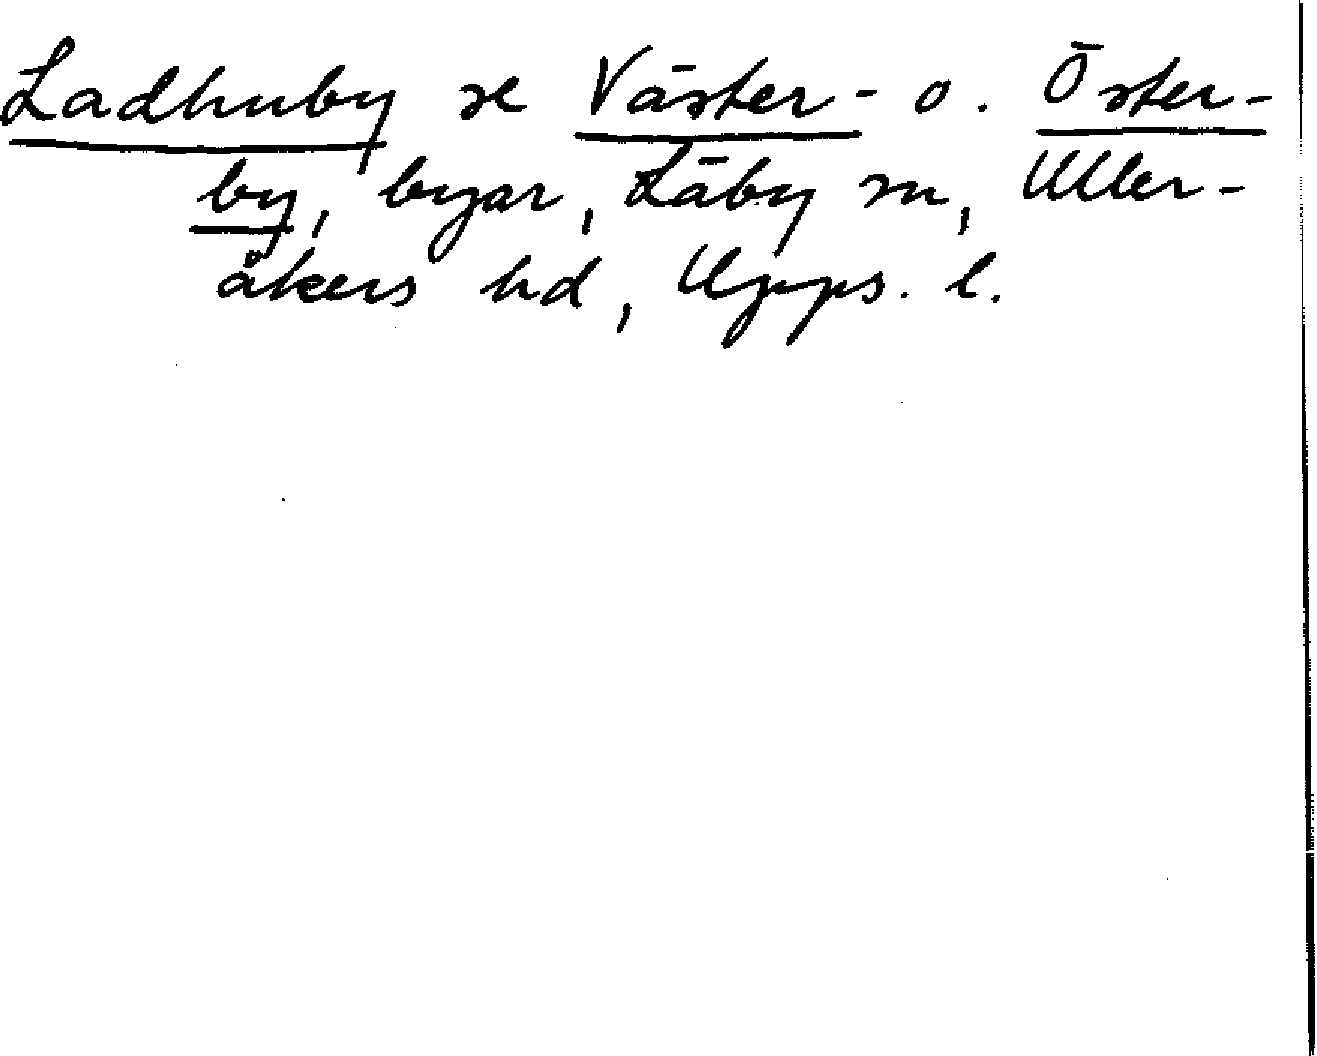 Ladhuby se Väster- o. Öster-
by, byar, Läby sn, Uller-
åkers hd, Upps. l.